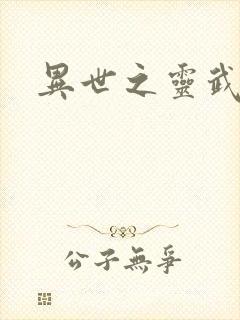 異世之靈武
公子無爭